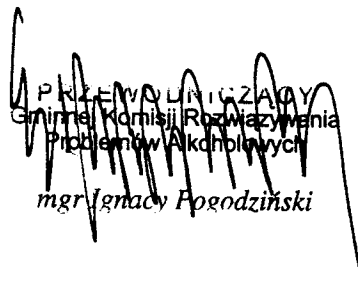 PRZEWODNICZĄCY
Gminnej Komisji Rozwiązywania
Problemów Alkoholowych
mgr Ignacy Pogodziński